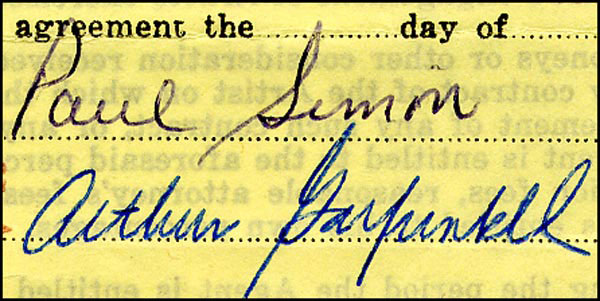 agreement the ............ day of ........
Paul Simon
Arthur Garfunkel